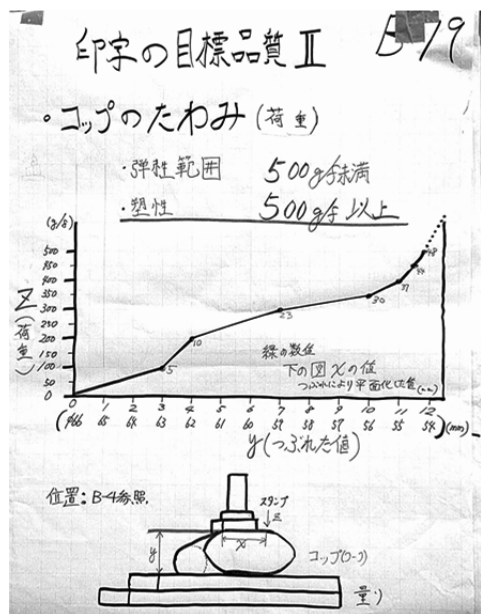 印字の目標品質 II
B-79
・コップのたわみ(荷重)
・弾性範囲 500g/f未満
・塑性 500g/f以上
(g/f)
500
450
400
350
300
250
200
150
100
50
0
Z(荷重)
5
10
23
30
37
線の数値
下の図xの値
つぶれにより平面化した値(mm)
0 1 2 3 4 5 6 7 8 9 10 11 12
(φ66 65 64 63 62 61 60 59 58 57 56 55 54)(mm)
y(つぶれた値)
位置:B-4参照.
スタンプ
Z
x
y
コップ(ワーク)